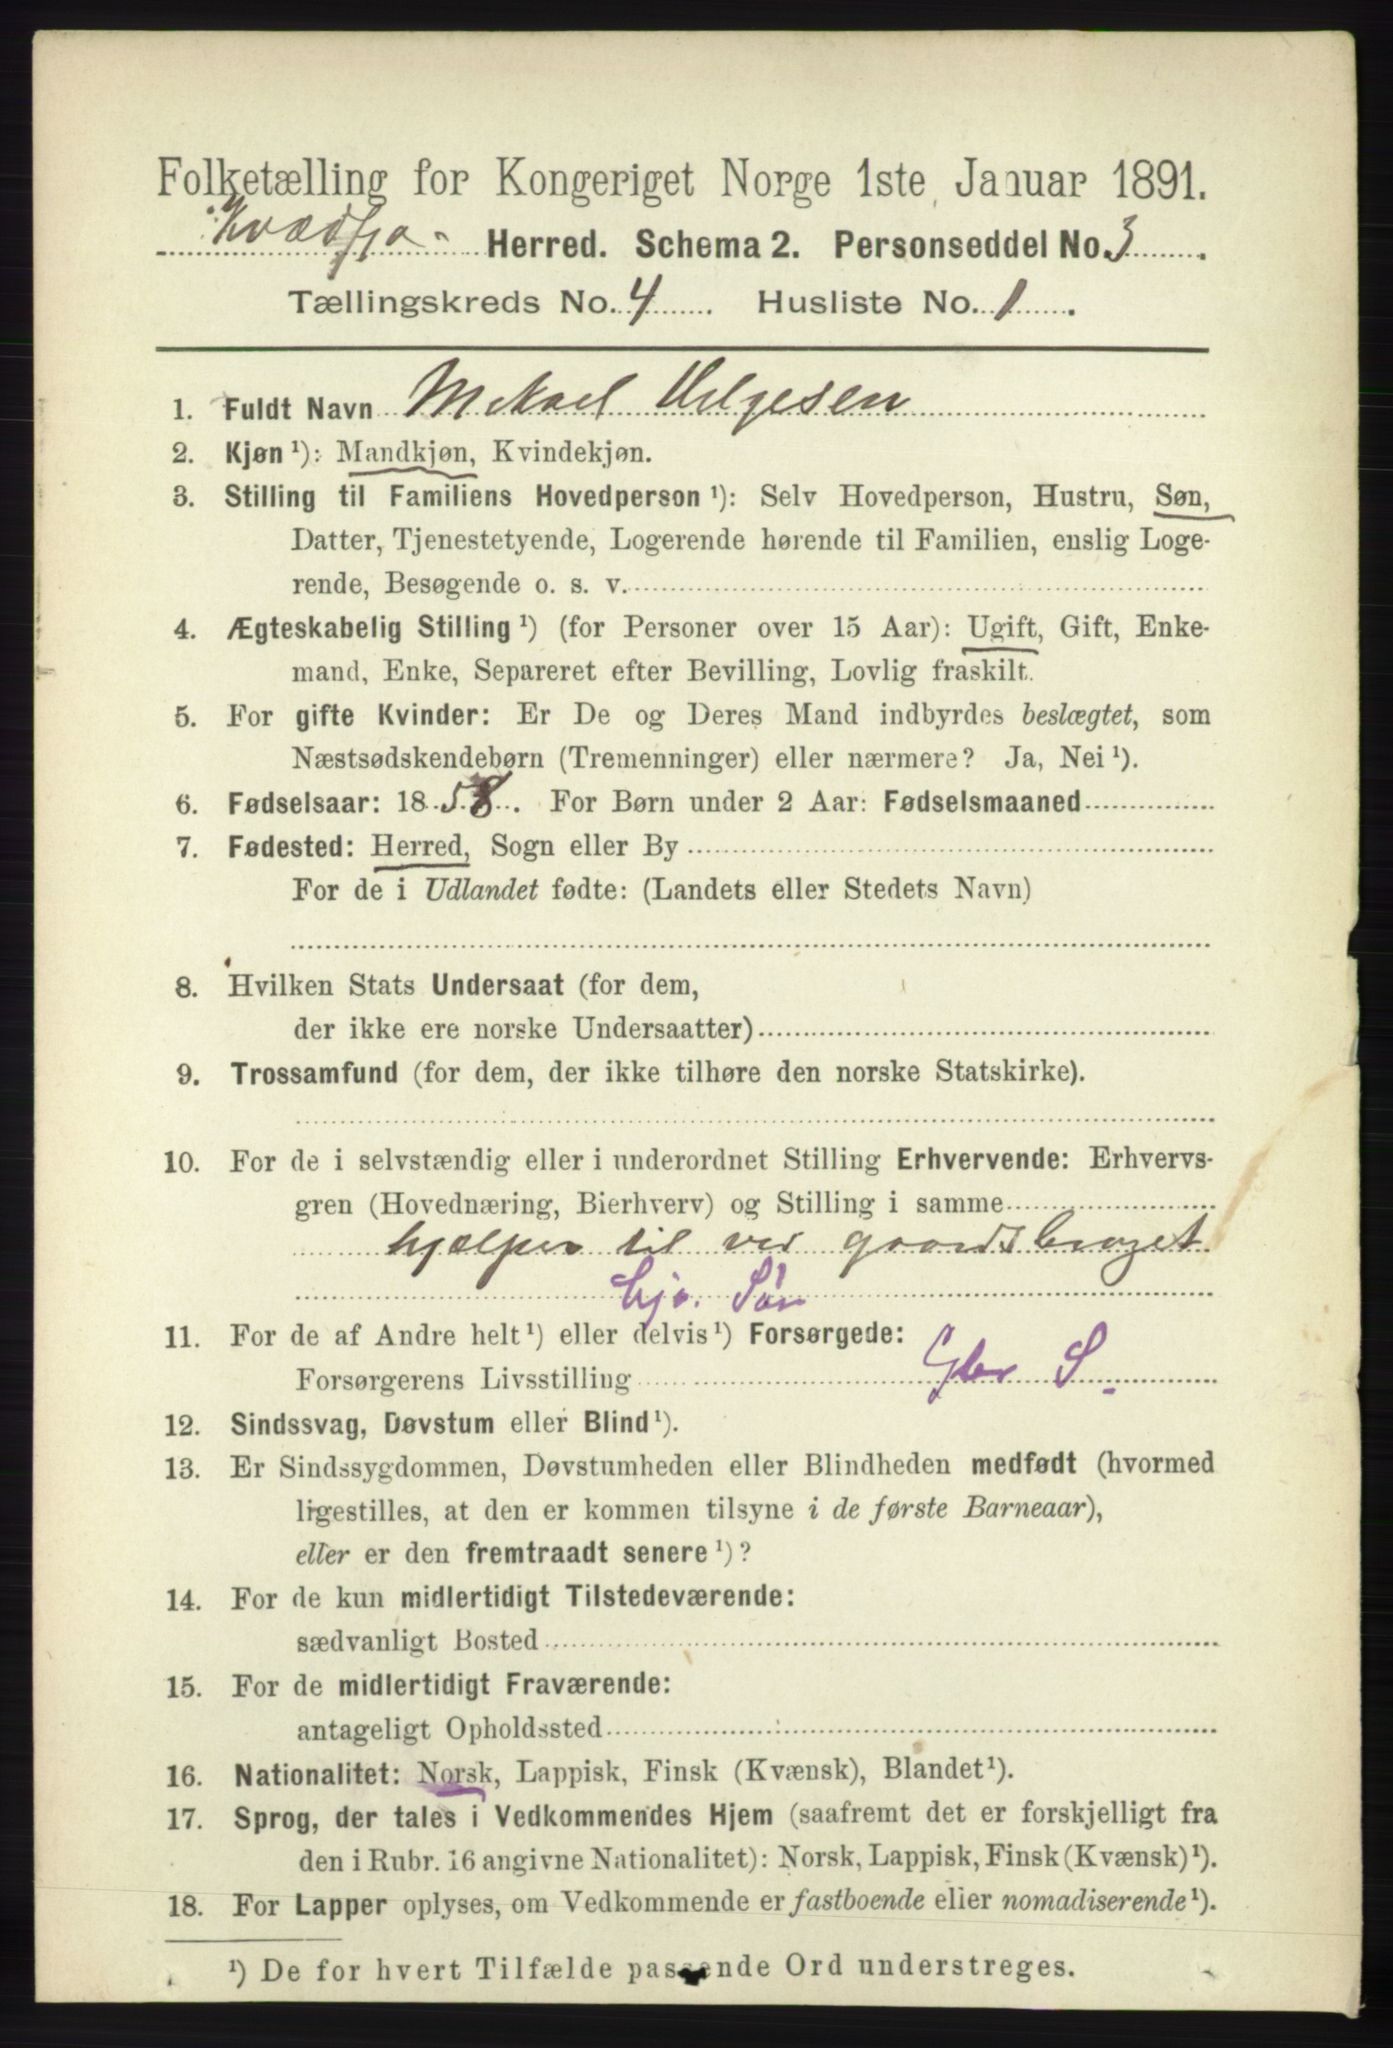 Folketælling for Kongeriget Norge 1ste Januar 1891.
Kvædfjo- Herred. Schema 2. Personseddel No. 3.
Tællingskreds No. 4. Husliste No. 1.
1. Fuldt Navn Mikael Helgesen
2. Kjøn ¹): Mandkjøn, Kvindekjøn.
3. Stilling til Familiens Hovedperson ¹): Selv Hovedperson, Hustru, Søn,
Datter, Tjenestetyende, Logerende hørende til Familien, enslig Loge-
rende, Besøgende o. s. v.
4. Ægteskabelig Stilling ¹) (for Personer over 15 Aar): Ugift, Gift, Enke-
mand, Enke, Separeret efter Bevilling, Lovlig fraskilt.
5. For gifte Kvinder: Er De og Deres Mand indbyrdes beslægtet, som
Næstsødskendebørn (Tremenninger) eller nærmere? Ja, Nei ¹).
6. Fødselsaar: 1858. For Børn under 2 Aar: Fødselsmaaned
7. Fødested: Herred, Sogn eller By
For de i Udlandet fødte: (Landets eller Stedets Navn)
8. Hvilken Stats Undersaat (for dem,
der ikke ere norske Undersaatter)
9. Trossamfund (for dem, der ikke tilhøre den norske Statskirke).
10. For de i selvstændig eller i underordnet Stilling Erhvervende: Erhvervs-
gren (Hovednæring, Bierhverv) og Stilling i samme
hjælper til ved gaardsbruget
hj. Søn
11. For de af Andre helt ¹) eller delvis ¹) Forsørgede:
Forsørgerens Livsstilling Gbr S.
12. Sindssvag, Døvstum eller Blind ¹).
13. Er Sindssygdommen, Døvstumheden eller Blindheden medfødt (hvormed
ligestilles, at den er kommen tilsyne i de første Barneaar),
eller er den fremtraadt senere ¹)?
14. For de kun midlertidigt Tilstedeværende:
sædvanligt Bosted
15. For de midlertidigt Fraværende:
antageligt Opholdssted
16. Nationalitet: Norsk, Lappisk, Finsk (Kvænsk), Blandet ¹).
17. Sprog, der tales i Vedkommendes Hjem (saafremt det er forskjelligt fra
den i Rubr. 16 angivne Nationalitet): Norsk, Lappisk, Finsk (Kvænsk) ¹).
18. For Lapper oplyses, om Vedkommende er fastboende eller nomadiserende ¹).
¹) De for hvert Tilfælde passende Ord understreges.